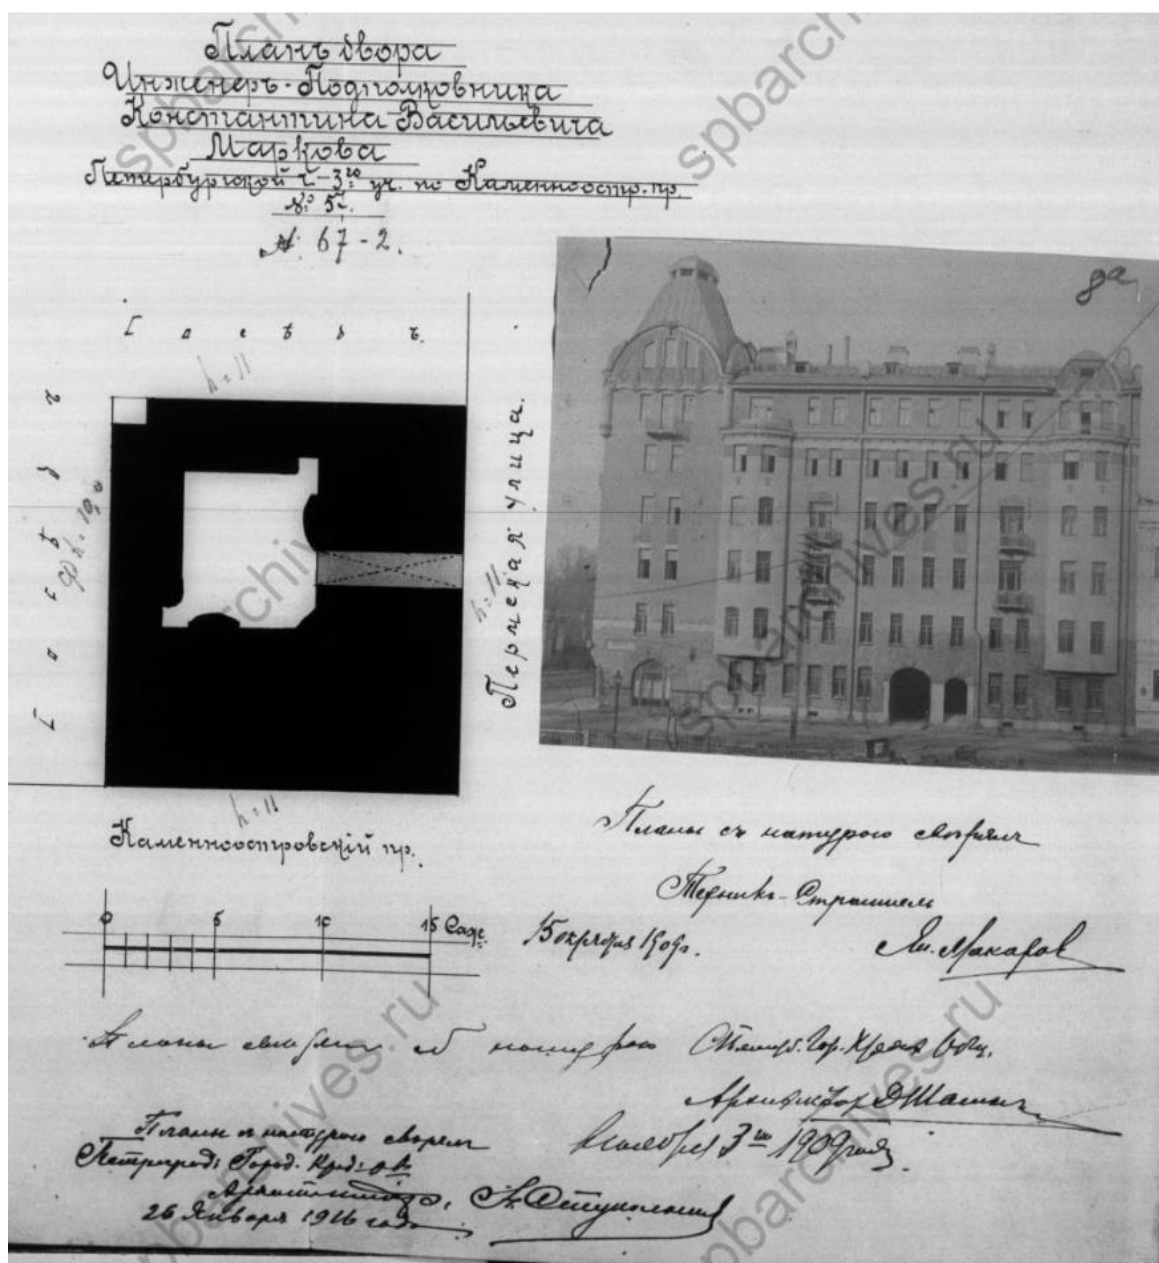 Планъ двора
Инженеръ-Подполковника
Константина Васильевича
Маркова
Петербургской ч. 3го уч. по Каменноостр. пр.
№ 5
67-2.
8а
Г о с ѣ д ъ
h=11
Г о с ѣ д ъ
h=10,0
Пермская улица.
h=11.
h=11
Каменноостровскій пр.
0 5 10 15 Саж.
Планы съ натурою сверялъ
Техникъ-Строитель
15 октября 1909г.
Ян. Макаров
Планы сверялъ съ натурою
Архитекторъ
ноября 3го 1909 года.
Планы съ натурою сверялъ
Петроград. Город. Кред. о-ва
Архитекторъ
26 Января 1916 года
spbarchives.ru